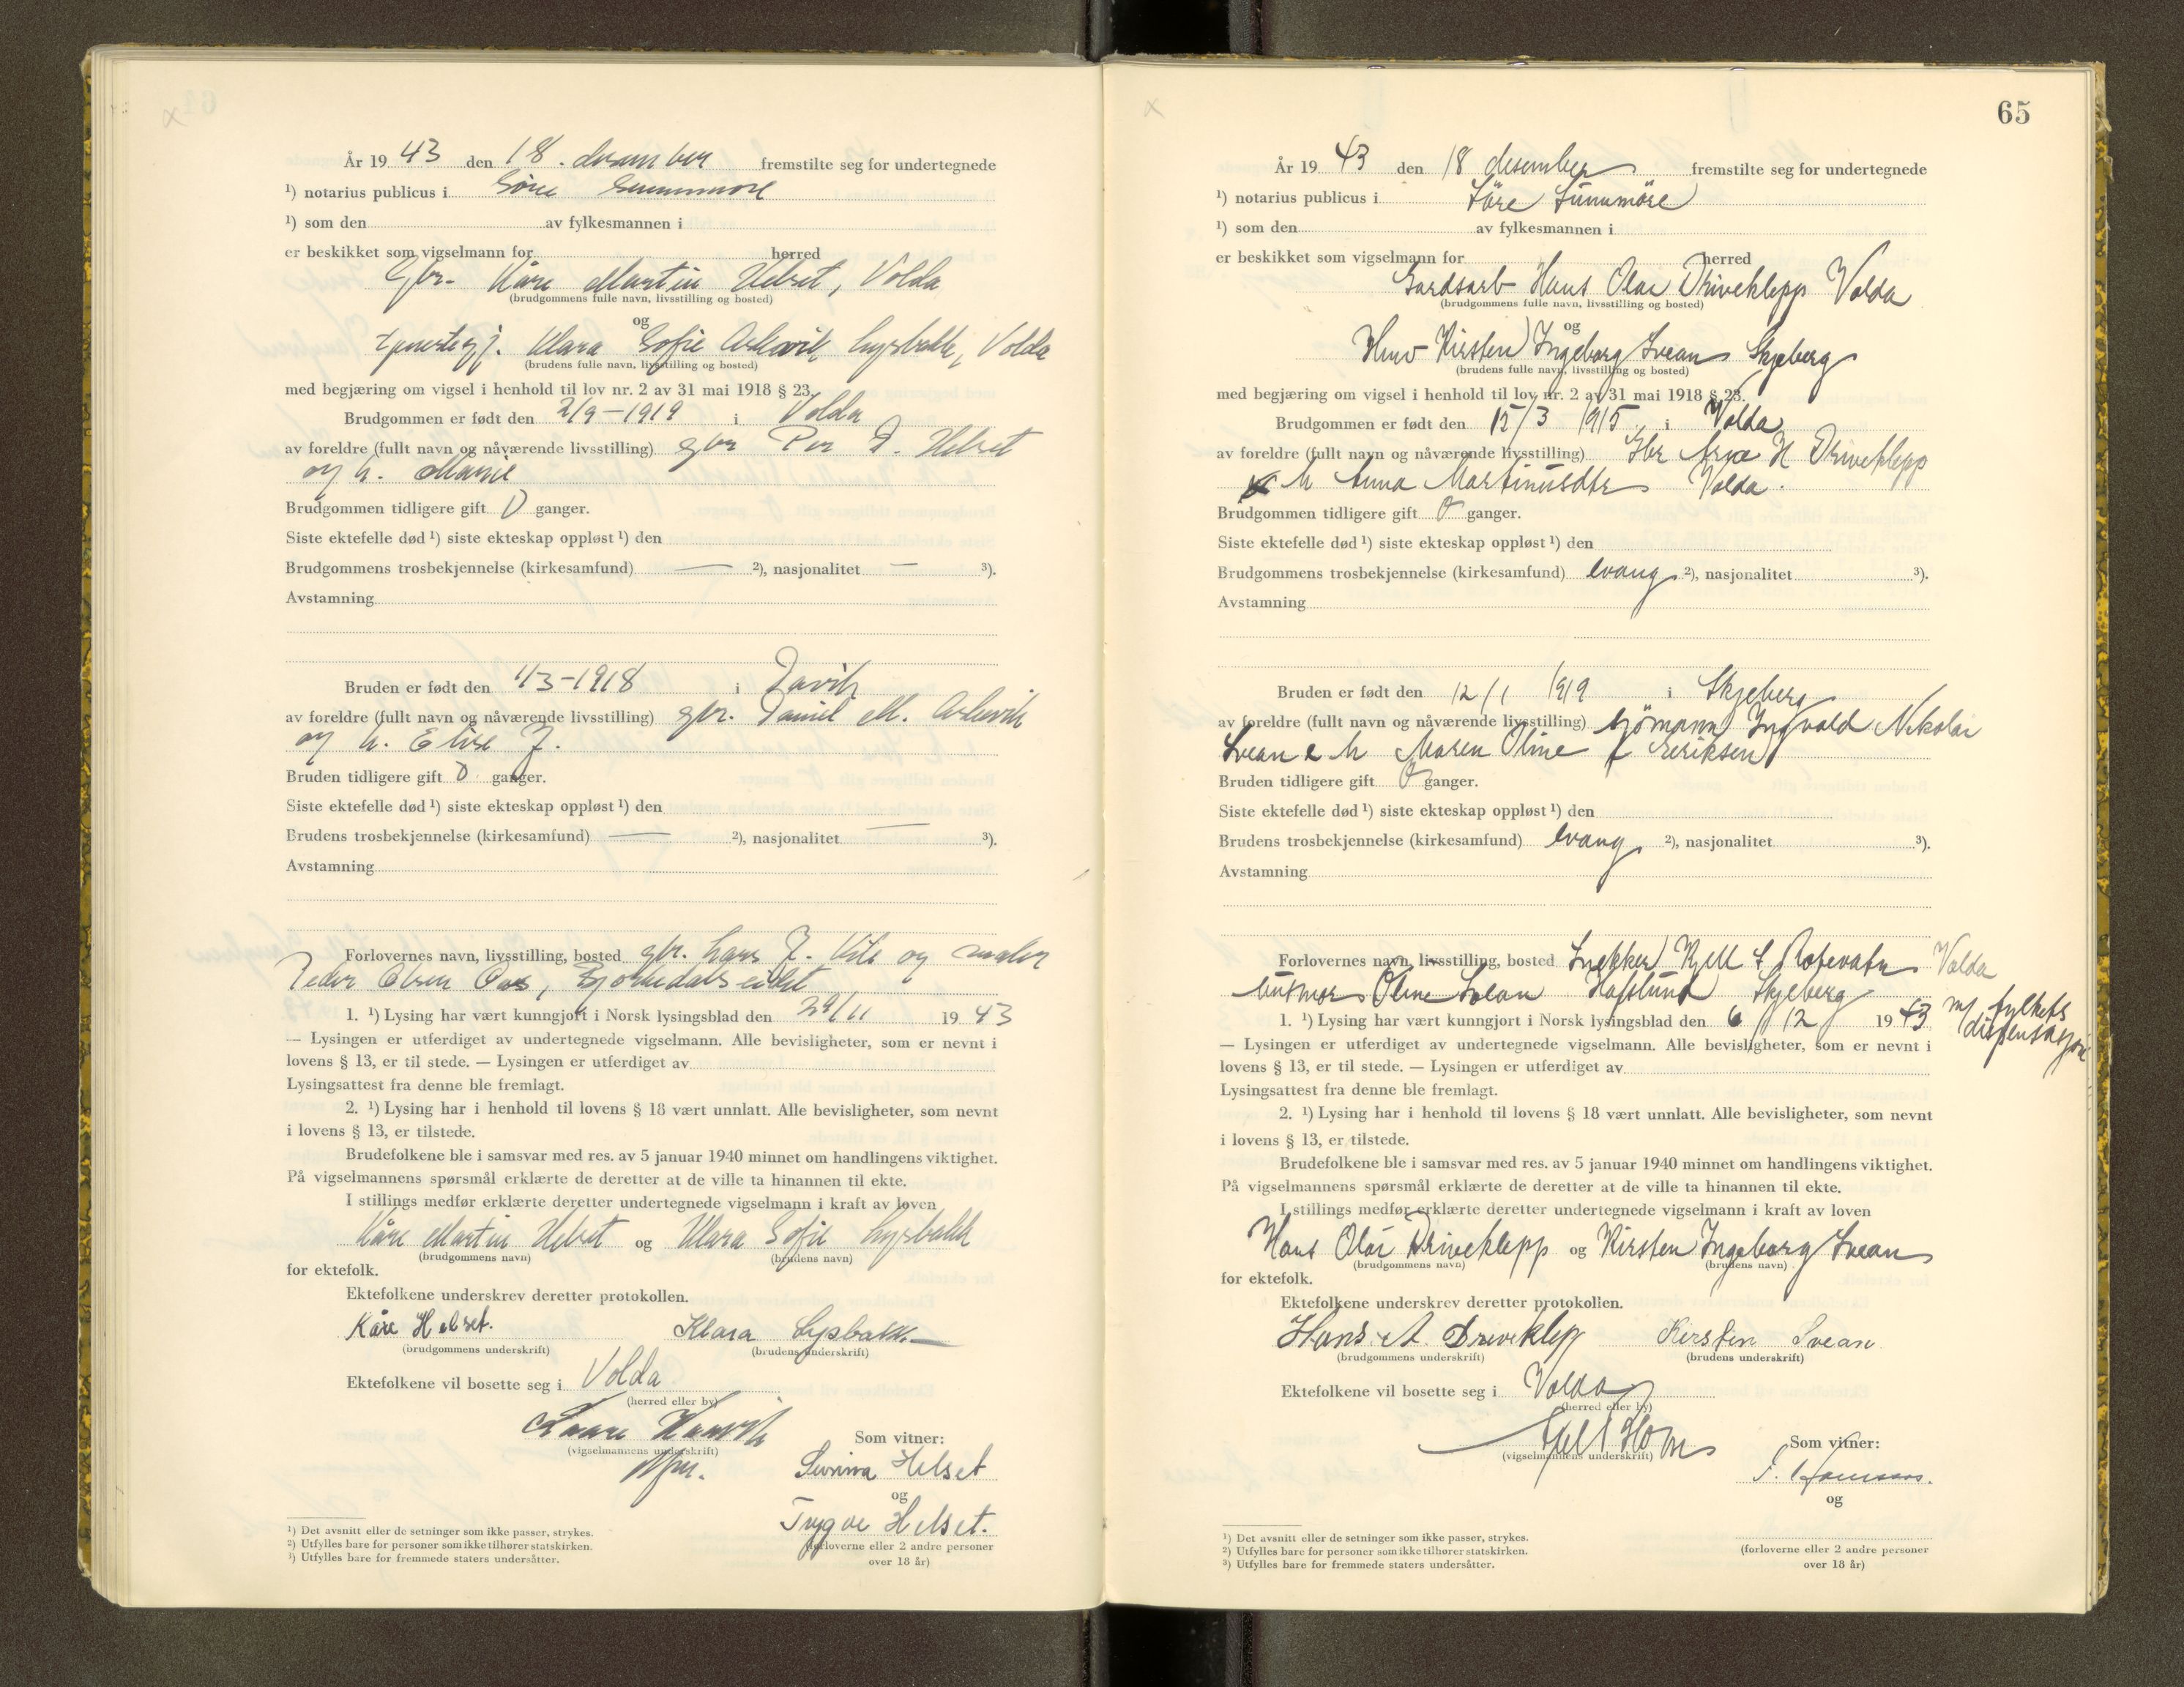 År 19 43 den 18. fremstilte seg for undertegnede
¹) notarius publicus i Søre Sunnmøre
¹) som den av fylkesmannen i
er beskikket som vigselmann for herred
Gbr. Kåre Martin Helset, Volda
(brudgommens fulle navn, livsstilling og bosted)
og
Klara Sofie Lysbakk, Volda
(brudens fulle navn, livsstilling og bosted)
med begjæring om vigsel i henhold til lov nr. 2 av 31 mai 1918 § 23.
Brudgommen er født den 2/9-1919 i Volda
av foreldre (fullt navn og nåværende livsstilling) gbr Per J. Helset
og h. Marie
Brudgommen tidligere gift 0 ganger.
Siste ektefelle død ¹) siste ekteskap oppløst ¹) den
Brudgommens trosbekjennelse (kirkesamfund) — ²), nasjonalitet — ³).
Avstamning
Bruden er født den 1/3-1918 i Davik
av foreldre (fullt navn og nåværende livsstilling) gbr. Daniel M.
og h. Elise J.
Bruden tidligere gift 0 ganger.
Siste ektefelle død ¹) siste ekteskap oppløst ¹) den
Brudens trosbekjennelse (kirkesamfund) — ²), nasjonalitet — ³).
Avstamning
Forlovernes navn, livsstilling, bosted gbr. Lars J. og maler
Peder Olsen Aas,
1. ¹) Lysing har vært kunngjort i Norsk lysingsblad den 29/11 19 43
— Lysingen er utferdiget av undertegnede vigselmann. Alle bevisligheter, som er nevnt i
lovens § 13, er til stede. — Lysingen er utferdiget av
Lysingsattest fra denne ble fremlagt.
2. ¹) Lysing har i henhold til lovens § 18 vært unnlatt. Alle bevisligheter, som nevnt
i lovens § 13, er tilstede.
Brudefolkene ble i samsvar med res. av 5 januar 1940 minnet om handlingens viktighet.
På vigselmannens spørsmål erklærte de deretter at de ville ta hinannen til ekte.
I stillings medfør erklærte deretter undertegnede vigselmann i kraft av loven
Kåre Martin Helset og Klara Sofie Lysbakk
(brudgommens navn) (brudens navn)
for ektefolk.
Ektefolkene underskrev deretter protokollen.
Kåre Helset. Klara Lysbakk
(brudgommens underskrift) (brudens underskrift)
Ektefolkene vil bosette seg i Volda
(herred eller by)
(vigselmannens underskrift) Som vitner:
Helset
og
Trygve Helset.
(forloverne eller 2 andre personer
over 18 år)
¹) Det avsnitt eller de setninger som ikke passer, strykes.
²) Utfylles bare for personer som ikke tilhører statskirken.
³) Utfylles bare for fremmede staters undersåtter.
65
År 19 43 den 18 desember fremstilte seg for undertegnede
¹) notarius publicus i Söre Sunnmöre
¹) som den av fylkesmannen i
er beskikket som vigselmann for herred
Gardsarb Hans Olai Driveklepp Volda
(brudgommens fulle navn, livsstilling og bosted)
og
Kirsten Ingeborg Svean Skjeberg
(brudens fulle navn, livsstilling og bosted)
med begjæring om vigsel i henhold til lov nr. 2 av 31 mai 1918 § 23.
Brudgommen er født den 15/3 1915 i Volda
av foreldre (fullt navn og nåværende livsstilling) Gbr H Driveklepp
h Anna Martinusdtr Volda.
Brudgommen tidligere gift 0 ganger.
Siste ektefelle død ¹) siste ekteskap oppløst ¹) den
Brudgommens trosbekjennelse (kirkesamfund) evang ²), nasjonalitet ³).
Avstamning
Bruden er født den 12/1 1919 i Skjeberg
av foreldre (fullt navn og nåværende livsstilling) Sjömann Ingvald Nikolai
Svean & h Maren Oline f Eriksen
Bruden tidligere gift 0 ganger.
Siste ektefelle død ¹) siste ekteskap oppløst ¹) den
Brudens trosbekjennelse (kirkesamfund) evang ²), nasjonalitet ³).
Avstamning
Forlovernes navn, livsstilling, bosted Snekker Kjell Rotevatn Volda
Oline Svean Hafslund Skjeberg
1. ¹) Lysing har vært kunngjort i Norsk lysingsblad den 6/12 19 43 m/ fylkets
dispensasjon
— Lysingen er utferdiget av undertegnede vigselmann. Alle bevisligheter, som er nevnt i
lovens § 13, er til stede. — Lysingen er utferdiget av
Lysingsattest fra denne ble fremlagt.
2. ¹) Lysing har i henhold til lovens § 18 vært unnlatt. Alle bevisligheter, som nevnt
i lovens § 13, er tilstede.
Brudefolkene ble i samsvar med res. av 5 januar 1940 minnet om handlingens viktighet.
På vigselmannens spørsmål erklærte de deretter at de ville ta hinannen til ekte.
I stillings medfør erklærte deretter undertegnede vigselmann i kraft av loven
Hans Olai Driveklepp og Kirsten Ingeborg Svean
(brudgommens navn) (brudens navn)
for ektefolk.
Ektefolkene underskrev deretter protokollen.
Hans A. Driveklep Kirsten Svean
(brudgommens underskrift) (brudens underskrift)
Ektefolkene vil bosette seg i Volda
(herred eller by)
(vigselmannens underskrift) Som vitner:
og
(forloverne eller 2 andre personer
over 18 år)
¹) Det avsnitt eller de setninger som ikke passer, strykes.
²) Utfylles bare for personer som ikke tilhører statskirken.
³) Utfylles bare for fremmede staters undersåtter.